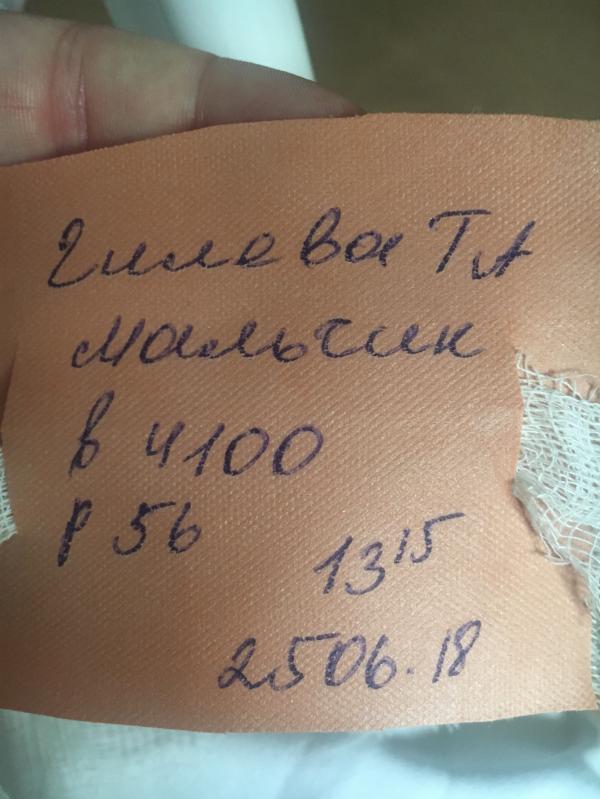 Гилева ТА
мальчик
в 4100
р 56
13 15
2506.18